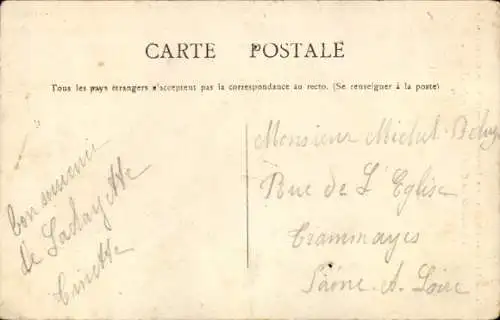 CARTE POSTALE
Tous les pays étrangers n'acceptent pas la correspondance au recto. (Se renseigner à la poste)
bon souvenir
de Lachayette
Ginette
Monsieur Michel
Rue de L'Eglise
Trammayes
Saône-et-Loire